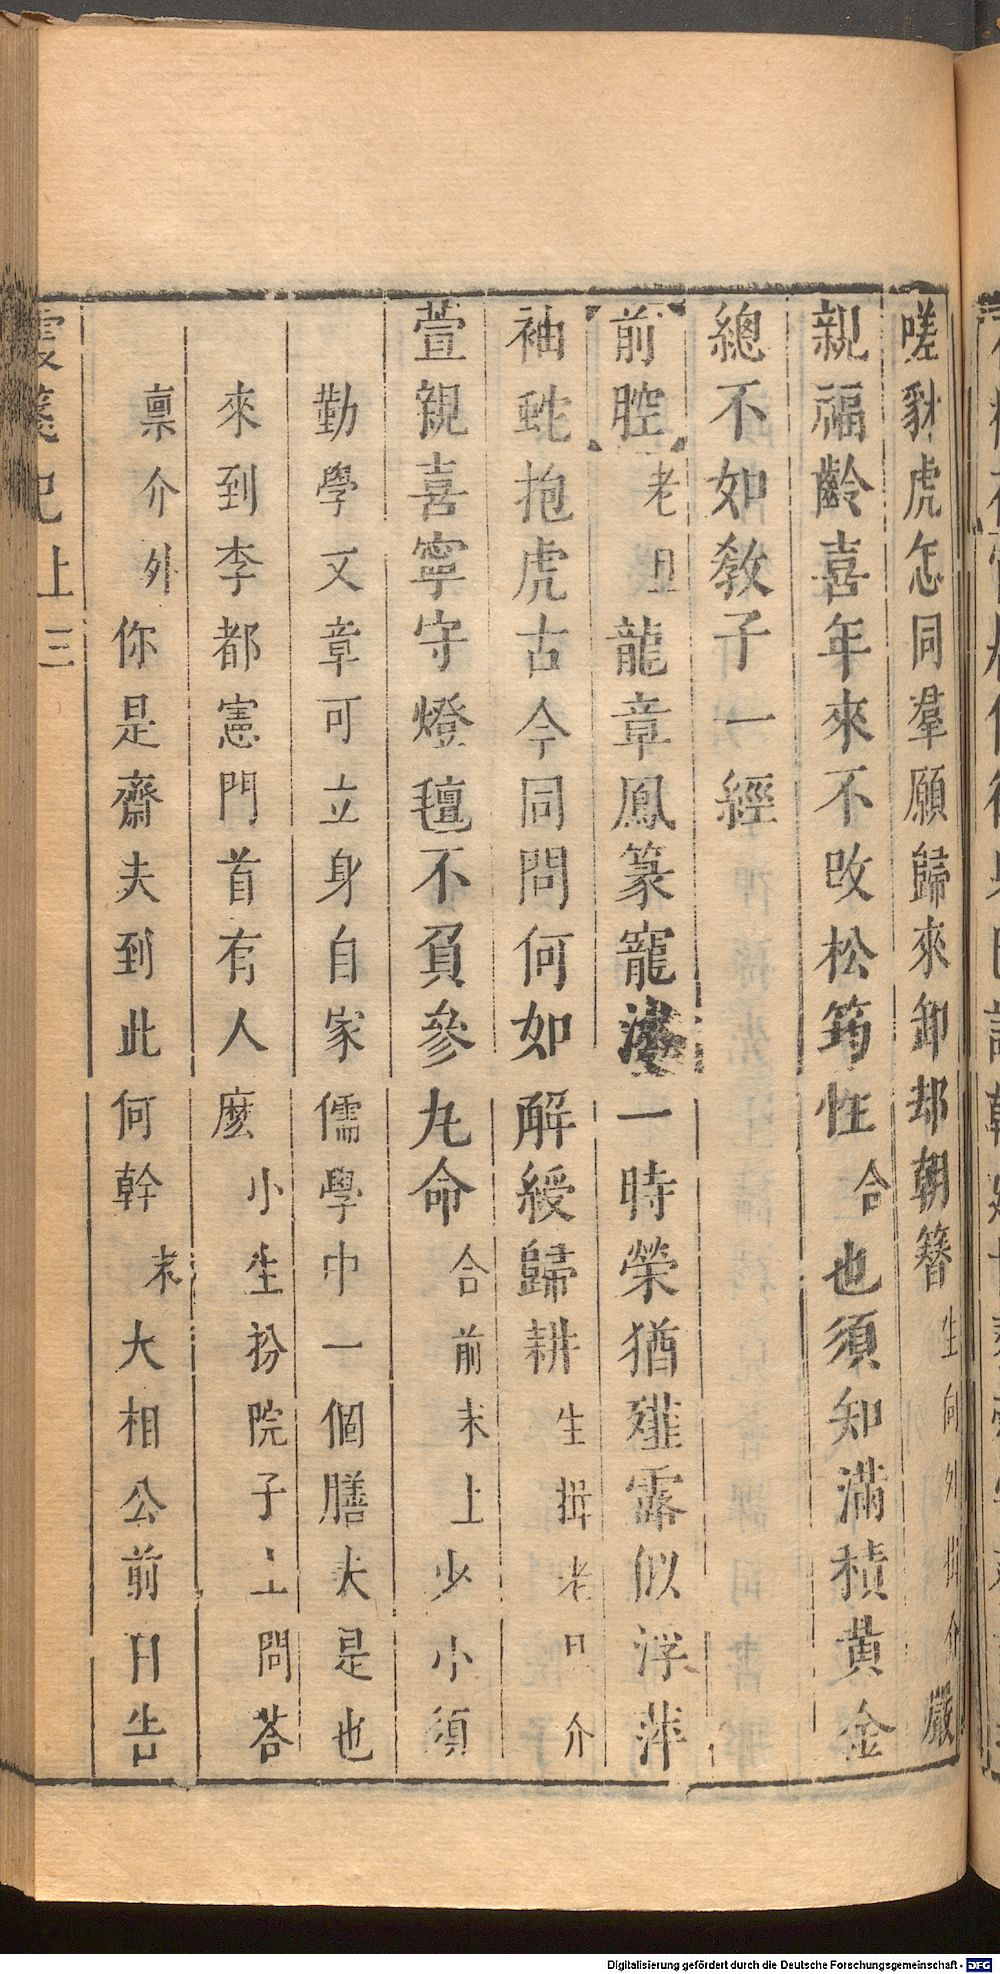 嗟豺虎怎同羣願歸來卸却朝簪生向外揖介嚴
親福齡喜年來不改松筠性合也須知滿積黃金
總不如教子一經
前腔老旦龍章鳳篆寵一時榮猶薤露似浮萍
袖蛇抱虎古今同問何如解綬歸耕生揖老旦介
萱親喜寧守燈氊不負參丸命合前末上少小須
勤學文章可立身自家儒學中一個膳夫是也
來到李都憲門首有人麼小生扮院子上問荅
稟介外你是齋夫到此何幹末大相公前日告
霞箋記上三
Digitalisierung gefördert durch die Deutsche Forschungsgemeinschaft - DFG